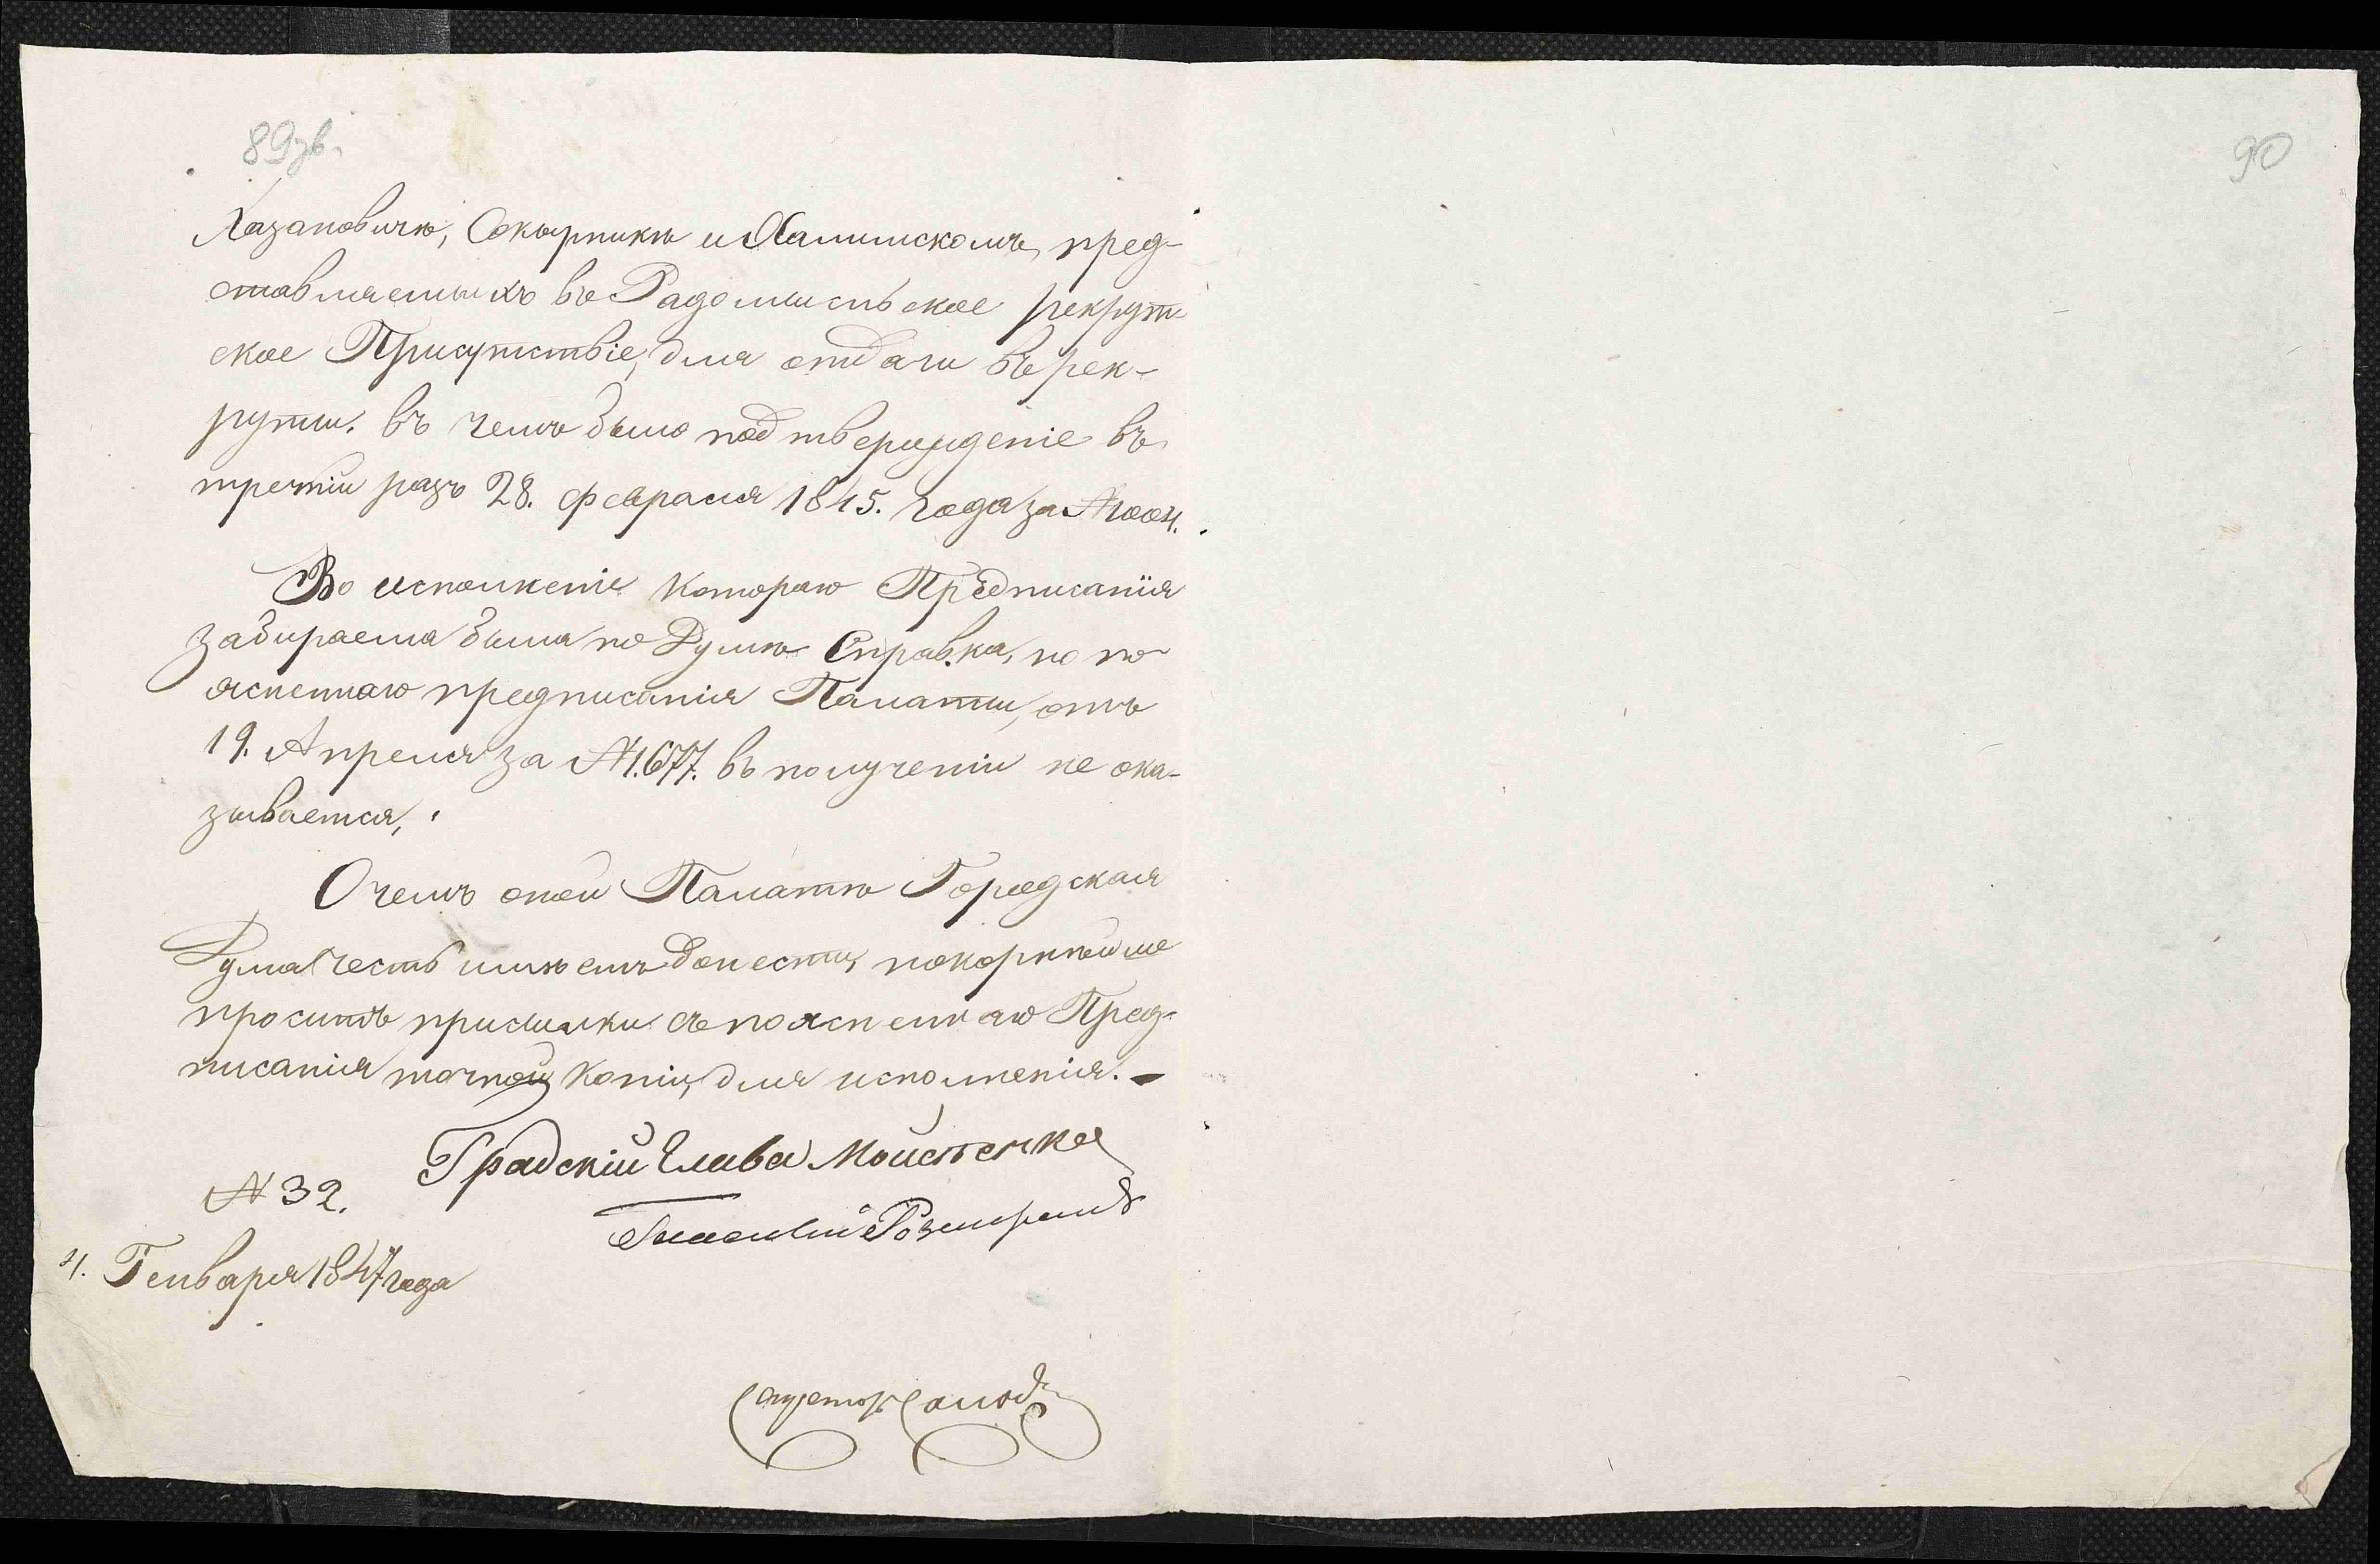 89зв.
90
Хазановичѣ, Сокырникѣ и Халимскомъ, пред-
ставляемыхъ въ Радомысльское рекрут-
ское Присутствіе, для отдачи въ рек-
руты. въ чемъ было подтвержденіе въ
третій разъ 28. февраля 1845. года за №1004.
Во исполненіе котораго Предписанія
забираема была по Думѣ Справка, но по
ясненнаго предписанія Палаты, отъ
19. Апреля за №1.677. въ полученіи не ока-
зывается,
О чемъ оной Палатѣ Городская
Дума честь имѣетъ донести, покорнѣйше
просить присылки съ поясненнаго Пред-
писанія точной копіи, для исполненія. –
Градскій Глава
№ 32.
Гласный
4. Генваря 1847 года